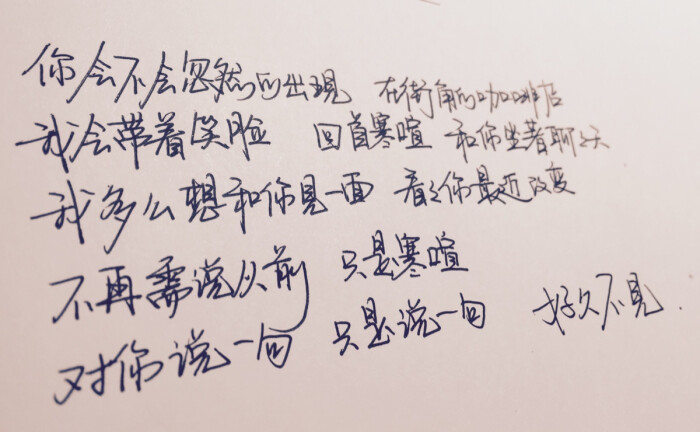 你会不会忽然的出現 在街角的咖啡店
我会带着笑脸 回首寒喧 和你坐著聊聊天
我多么想和你見一面 看看你最近改变
不再需说从前 只是寒喧
对你说一句 只是说一句 好久不見.